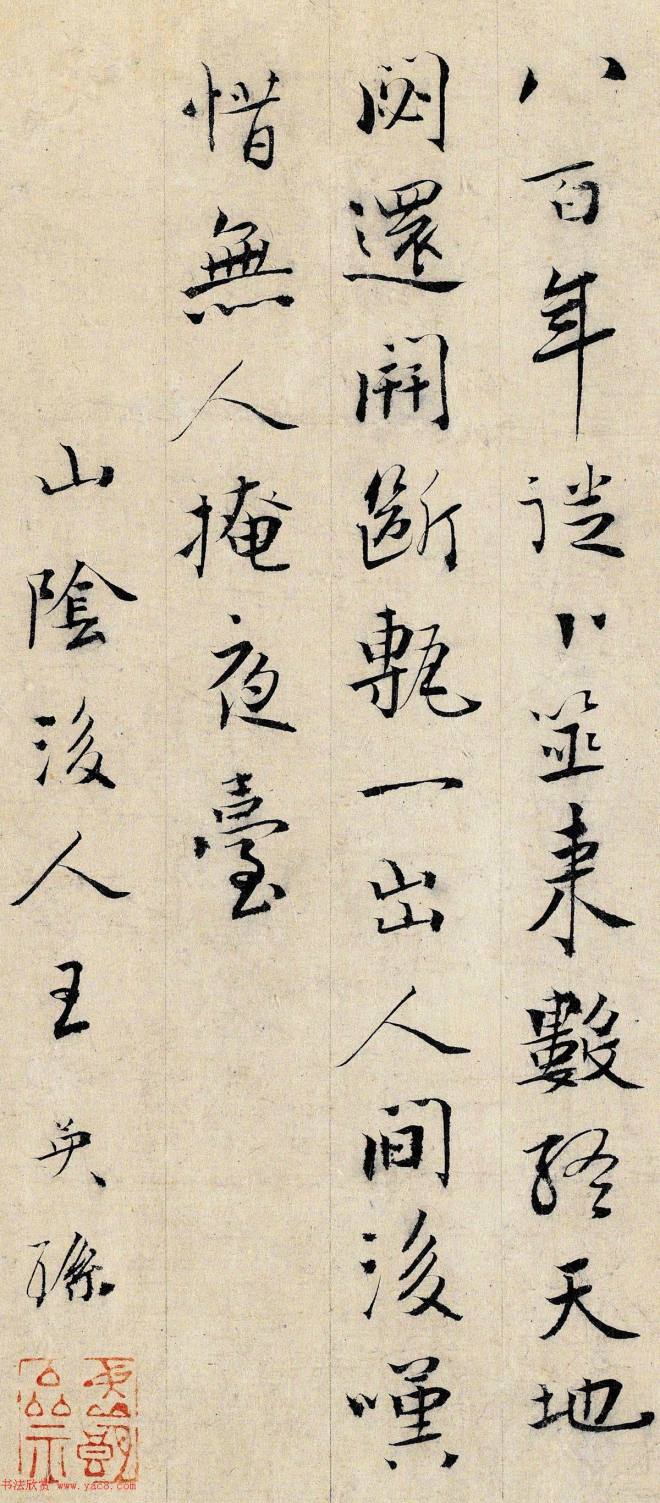 八百年設卜筮來數終天地
閟還開斷甎一出人間後嘆
惜無人掩夜臺
山陰後人王英孫
书法欣赏 www.yac8.com